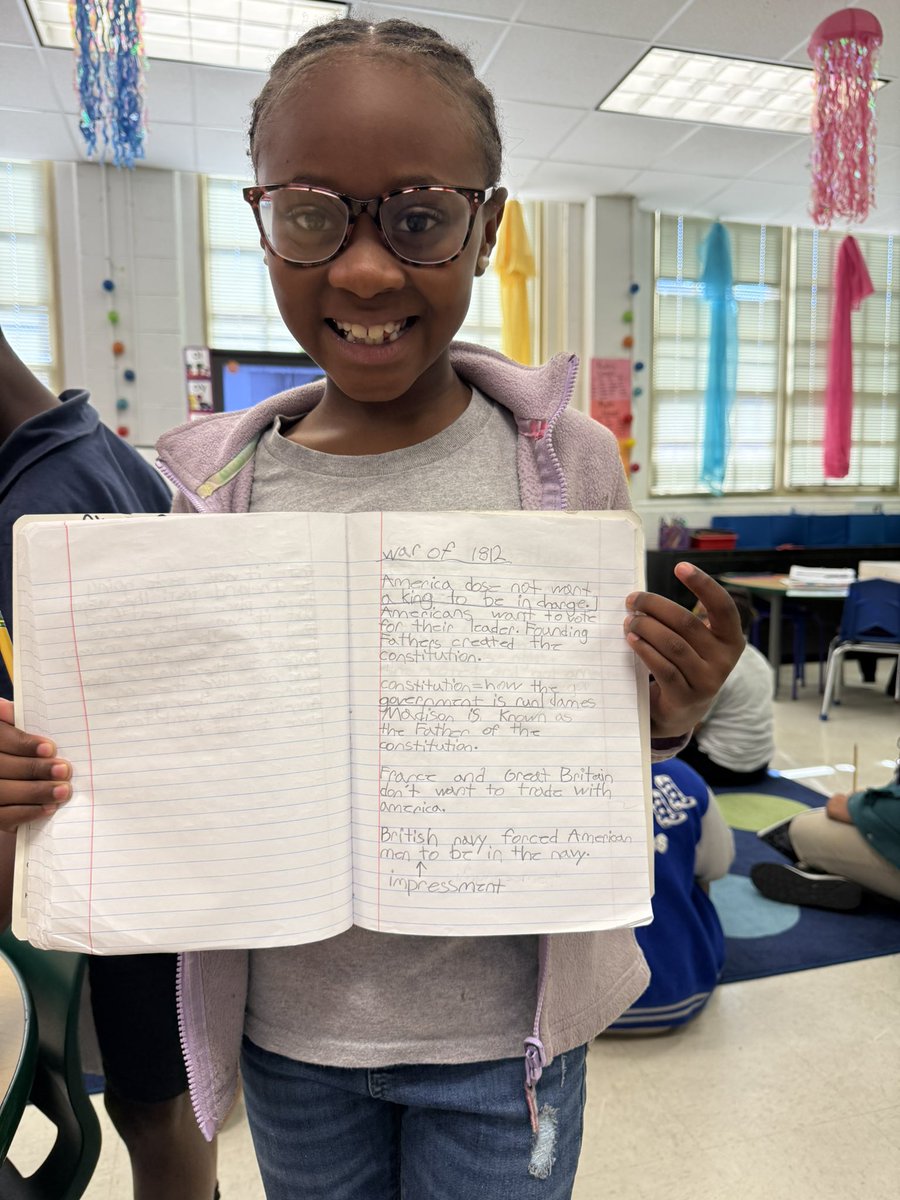 War of 1812
America dos not want
a king to be in charge.
Americans want to vote
for their leader. Founding
Fathers created the
constitution.
constitution=how the
government is run James
Madison is known as
the Father of the
constitution.
France and Great Britain
don't want to trade with
america.
British navy forced American
men to be in the navy.
impressment